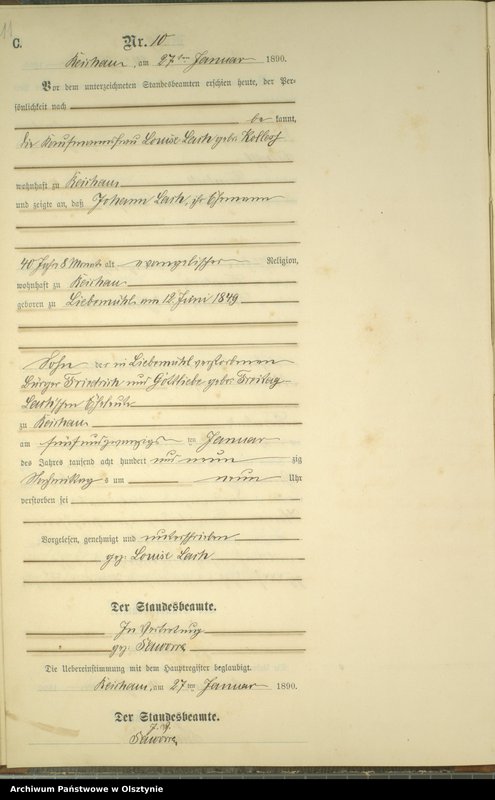 11
C.
Nr. 10
am 27ten Januar 1890.
Vor dem unterzeichneten Standesbeamten erschien heute, der Per-
sönlichkeit nach
be kannt,
die Kaufmannsfrau Louise Lask geb.
wohnhaft zu
und zeigte an, daß Johann Lask, ihr Ehemann
40 Jahr 8 Monate alt evangelischer Religion,
wohnhaft zu
geboren zu Liebemühl am 12. Juni 1849
Sohn der in Liebemühl verstorbenen
Bürger Friedrich und Gottliebe geb. Freitag
Lask'schen Eheleute
zu
am fünfundzwanzigsten Januar
des Jahres tausend acht hundert und neunzig
Nachmittags um neun Uhr
verstorben sei
Vorgelesen, genehmigt und unterschrieben
gez. Louise Lask
Der Standesbeamte.
In Vertretung
gez.
Die Uebereinstimmung mit dem Hauptregister beglaubigt.
am 27ten Januar 1890.
Der Standesbeamte.
Archiwum Państwowe w Olsztynie